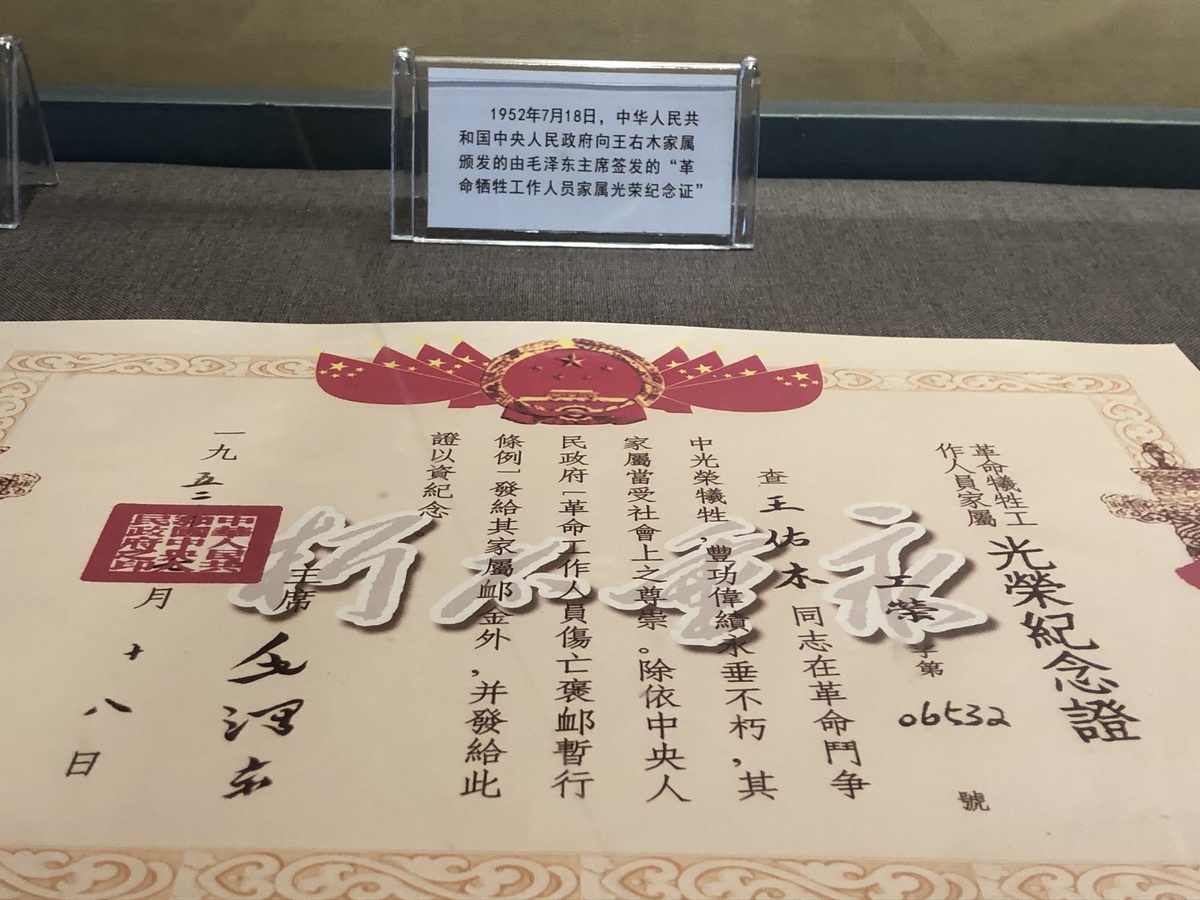 1952年7月18日，中华人民共
和国中央人民政府向王右木家属
颁发的由毛泽东主席签发的“革
命牺牲工作人员家属光荣纪念证”
革命犧牲工
作人員家屬
光榮紀念證
工榮字第06532號
查王佑木同志在革命鬥争
中光榮犧牲，豐功偉績永垂不朽，其
家屬當受社會上之尊崇。除依中央人
民政府「革命工作人員傷亡褒邺暫行
條例」發給其家屬邺金外，并發給此
證以資紀念
永垂不朽
主席毛澤東
一九五二
月十八日
中華人民共
和國中央人
民政府之印